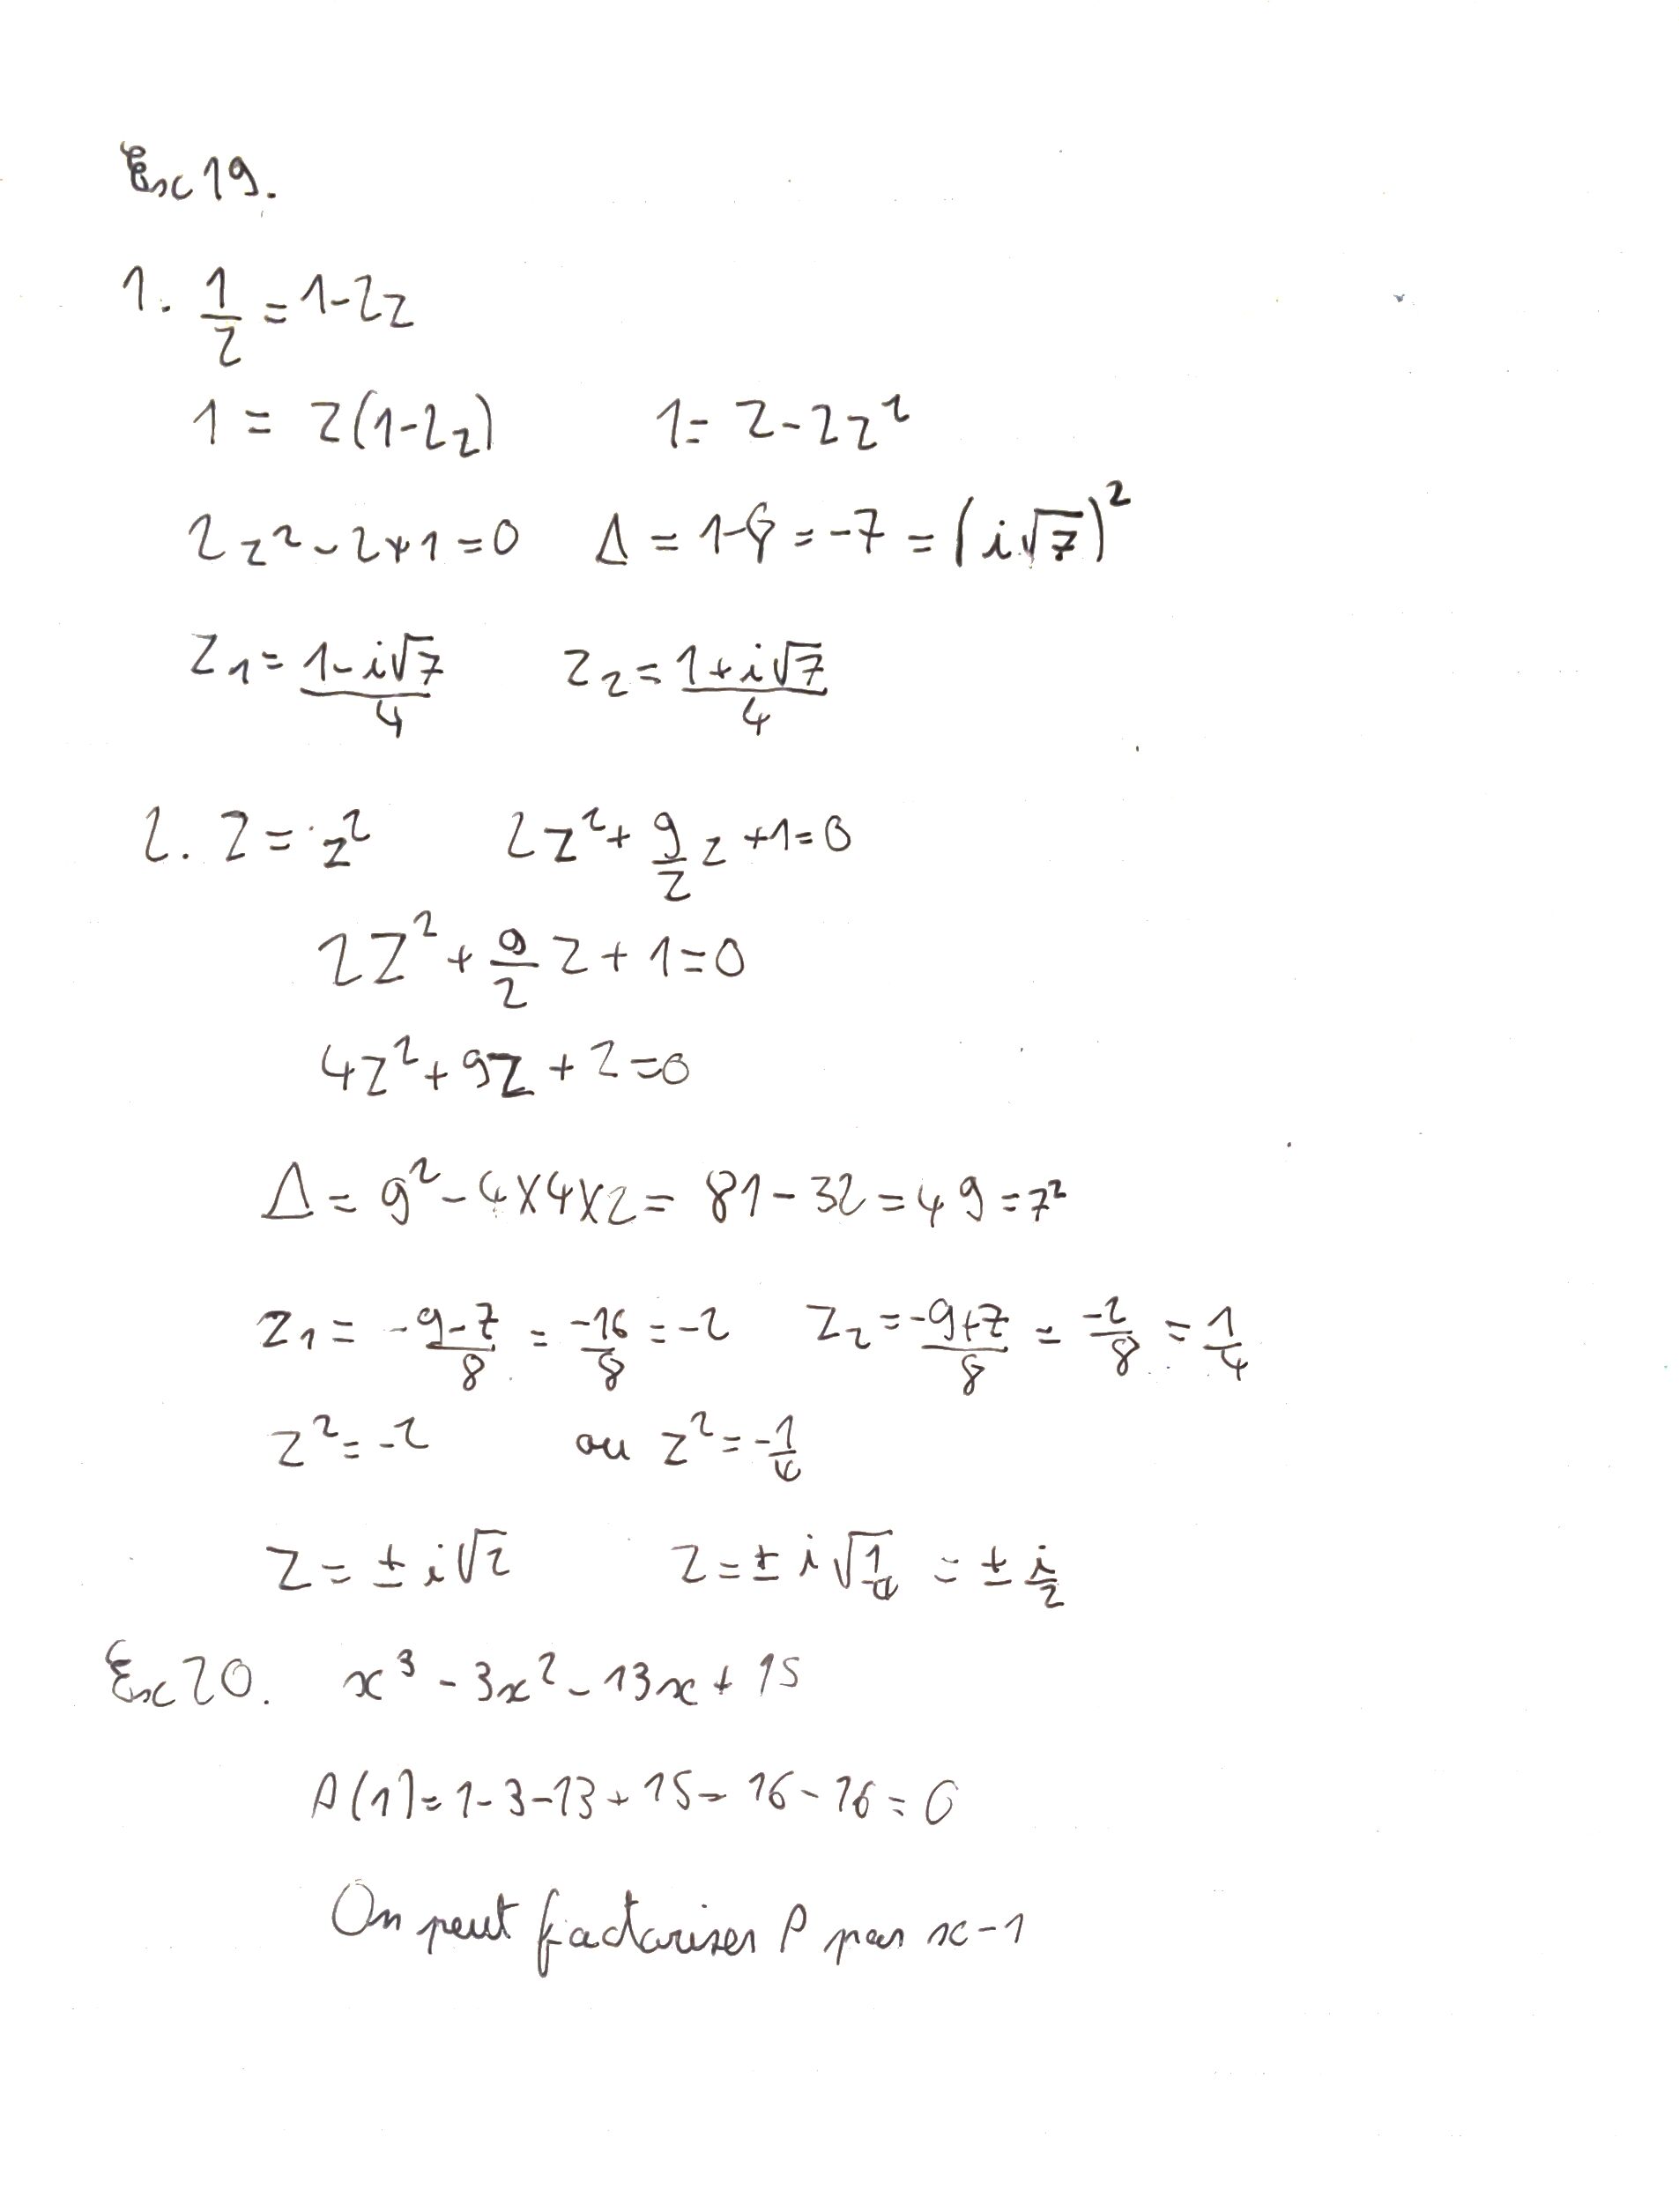 Exc 19.
1. 1/z = 1-2z
1 = z(1-2z) 1 = z-2z²
2z²-z+1=0 Δ = 1-8 = -7 = (i√7)²
z₁ = (1-i√7)/4 z₂ = (1+i√7)/4
2. Z = z² 2Z² + 9/2 Z + 1 = 0
2Z² + 9/2 Z + 1 = 0
4Z² + 9Z + 2 = 0
Δ = 9² - 4×4×2 = 81 - 32 = 49 = 7²
Z₁ = (-9-7)/8 = -16/8 = -2 Z₂ = (-9+7)/8 = -2/8 = 1/4
z² = -2 ou z² = -1/4
z = ± i√2 z = ± i√(1/4) = ± i/2
Exc 20. x³ - 3x² - 13x + 15
P(1) = 1-3-13+15 = 16-16 = 0
On peut factoriser P par x-1